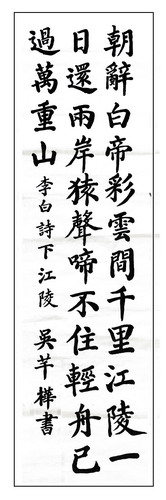 朝辭白帝彩雲間千里江陵一
日還兩岸猿聲啼不住輕舟已
過萬重山 李白詩下江陵 吳芊樺書